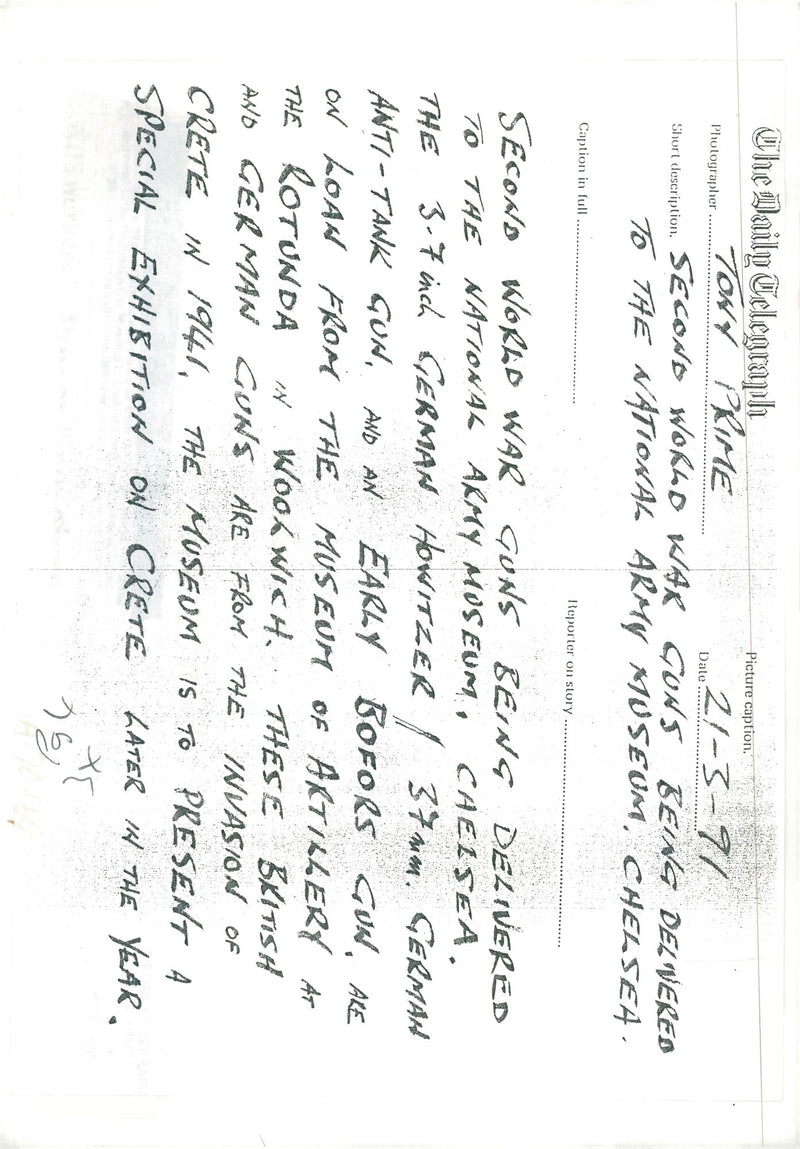 The Daily Telegraph
Picture caption.
Photographer TONY PRIME Date 21-3-91
Short description. SECOND WORLD WAR GUNS BEING DELIVERED
TO THE NATIONAL ARMY MUSEUM, CHELSEA.
Caption in full Reporter on story
SECOND WORLD WAR GUNS BEING DELIVERED
TO THE NATIONAL ARMY MUSEUM, CHELSEA.
THE 3.7 inch GERMAN HOWITZER // 37mm. GERMAN
ANTI-TANK GUN, AND AN EARLY BOFORS GUN, ARE
ON LOAN FROM THE MUSEUM OF ARTILLERY AT
THE ROTUNDA IN WOOLWICH. THESE BRITISH
AND GERMAN GUNS ARE FROM THE INVASION OF
CRETE IN 1941, THE MUSEUM IS TO PRESENT A
SPECIAL EXHIBITION ON CRETE LATER IN THE YEAR.